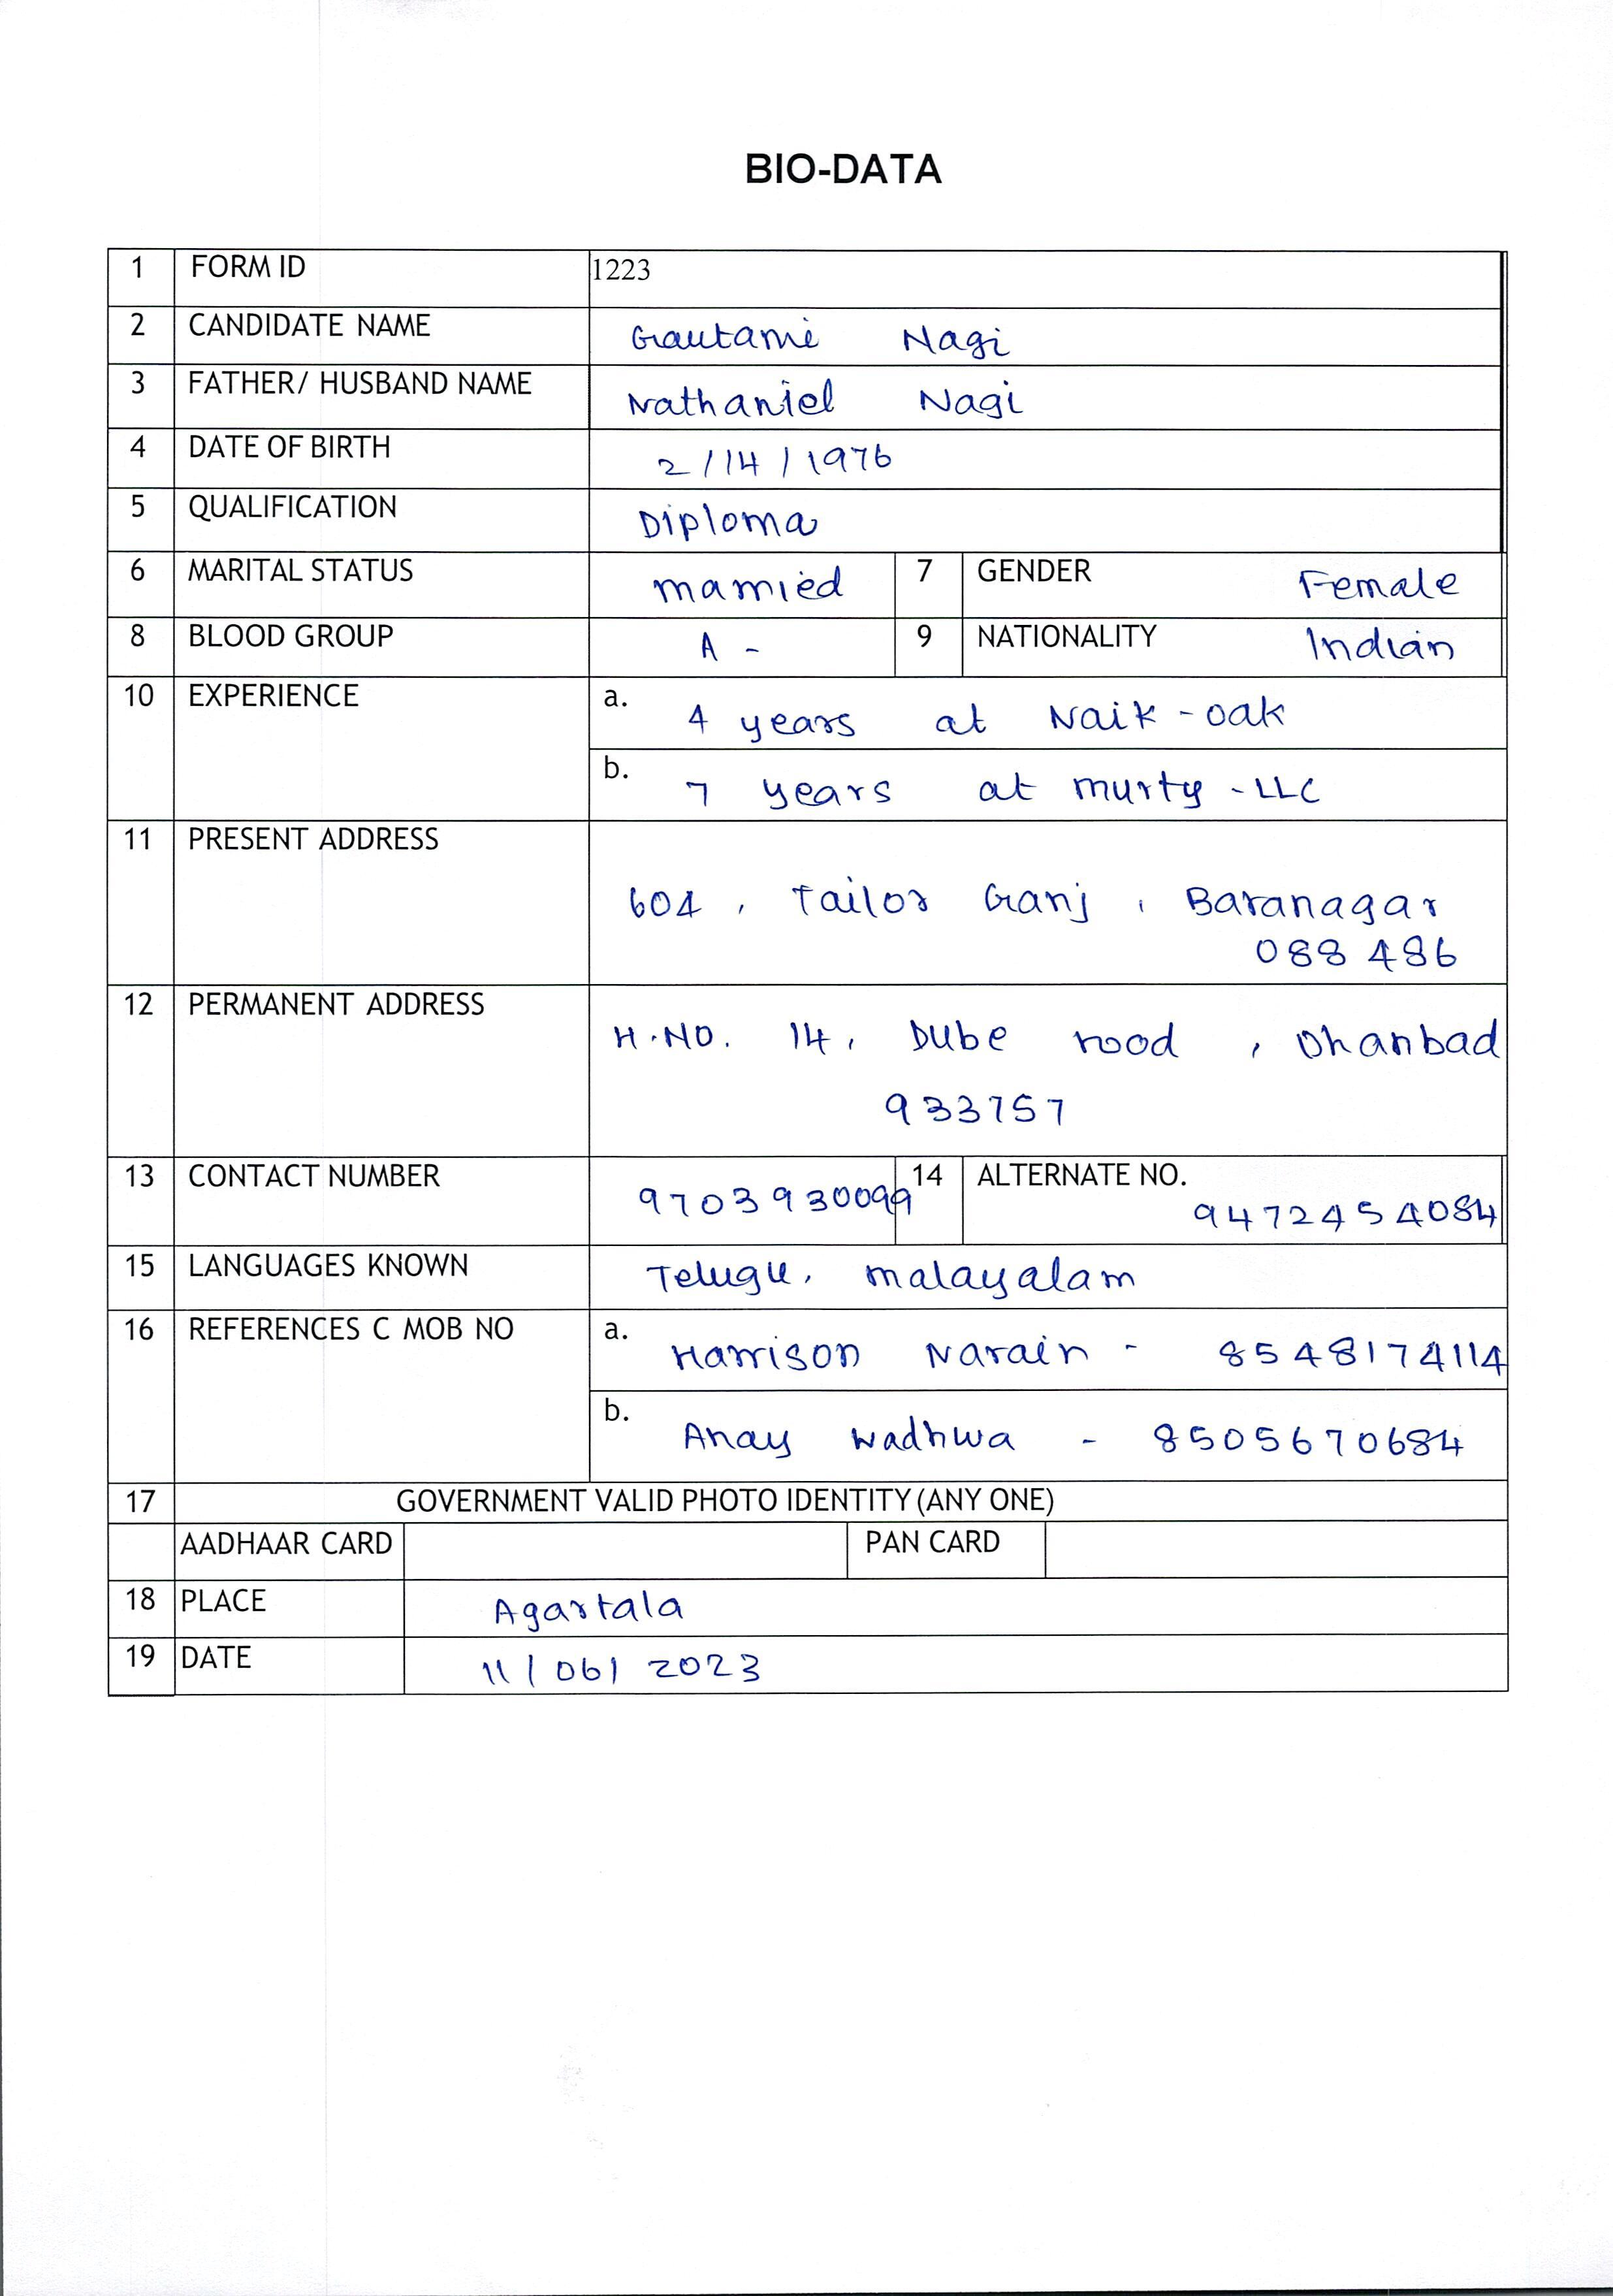 BIO-DATA
1 FORM ID 1223
2 CANDIDATE NAME Gautami Nagi
3 FATHER/ HUSBAND NAME Nathaniel Nagi
4 DATE OF BIRTH 2/14/1976
5 QUALIFICATION Diploma
6 MARITAL STATUS Married 7 GENDER Female
8 BLOOD GROUP A - 9 NATIONALITY Indian
10 EXPERIENCE a. 4 years at Naik-oak
b. 7 years at Murty-LLC
11 PRESENT ADDRESS
604, Tailor Ganj, Baranagar
088 486
12 PERMANENT ADDRESS
H.NO. 14, Dube road, Dhanbad
933757
13 CONTACT NUMBER 9703930099 14 ALTERNATE NO.
9472454084
15 LANGUAGES KNOWN Telugu, Malayalam
16 REFERENCES C MOB NO a. Harrison Narain - 8548174114
b. Anay Wadhwa - 8505670684
17 GOVERNMENT VALID PHOTO IDENTITY (ANY ONE)
AADHAAR CARD PAN CARD
18 PLACE Agartala
19 DATE 11/06/2023